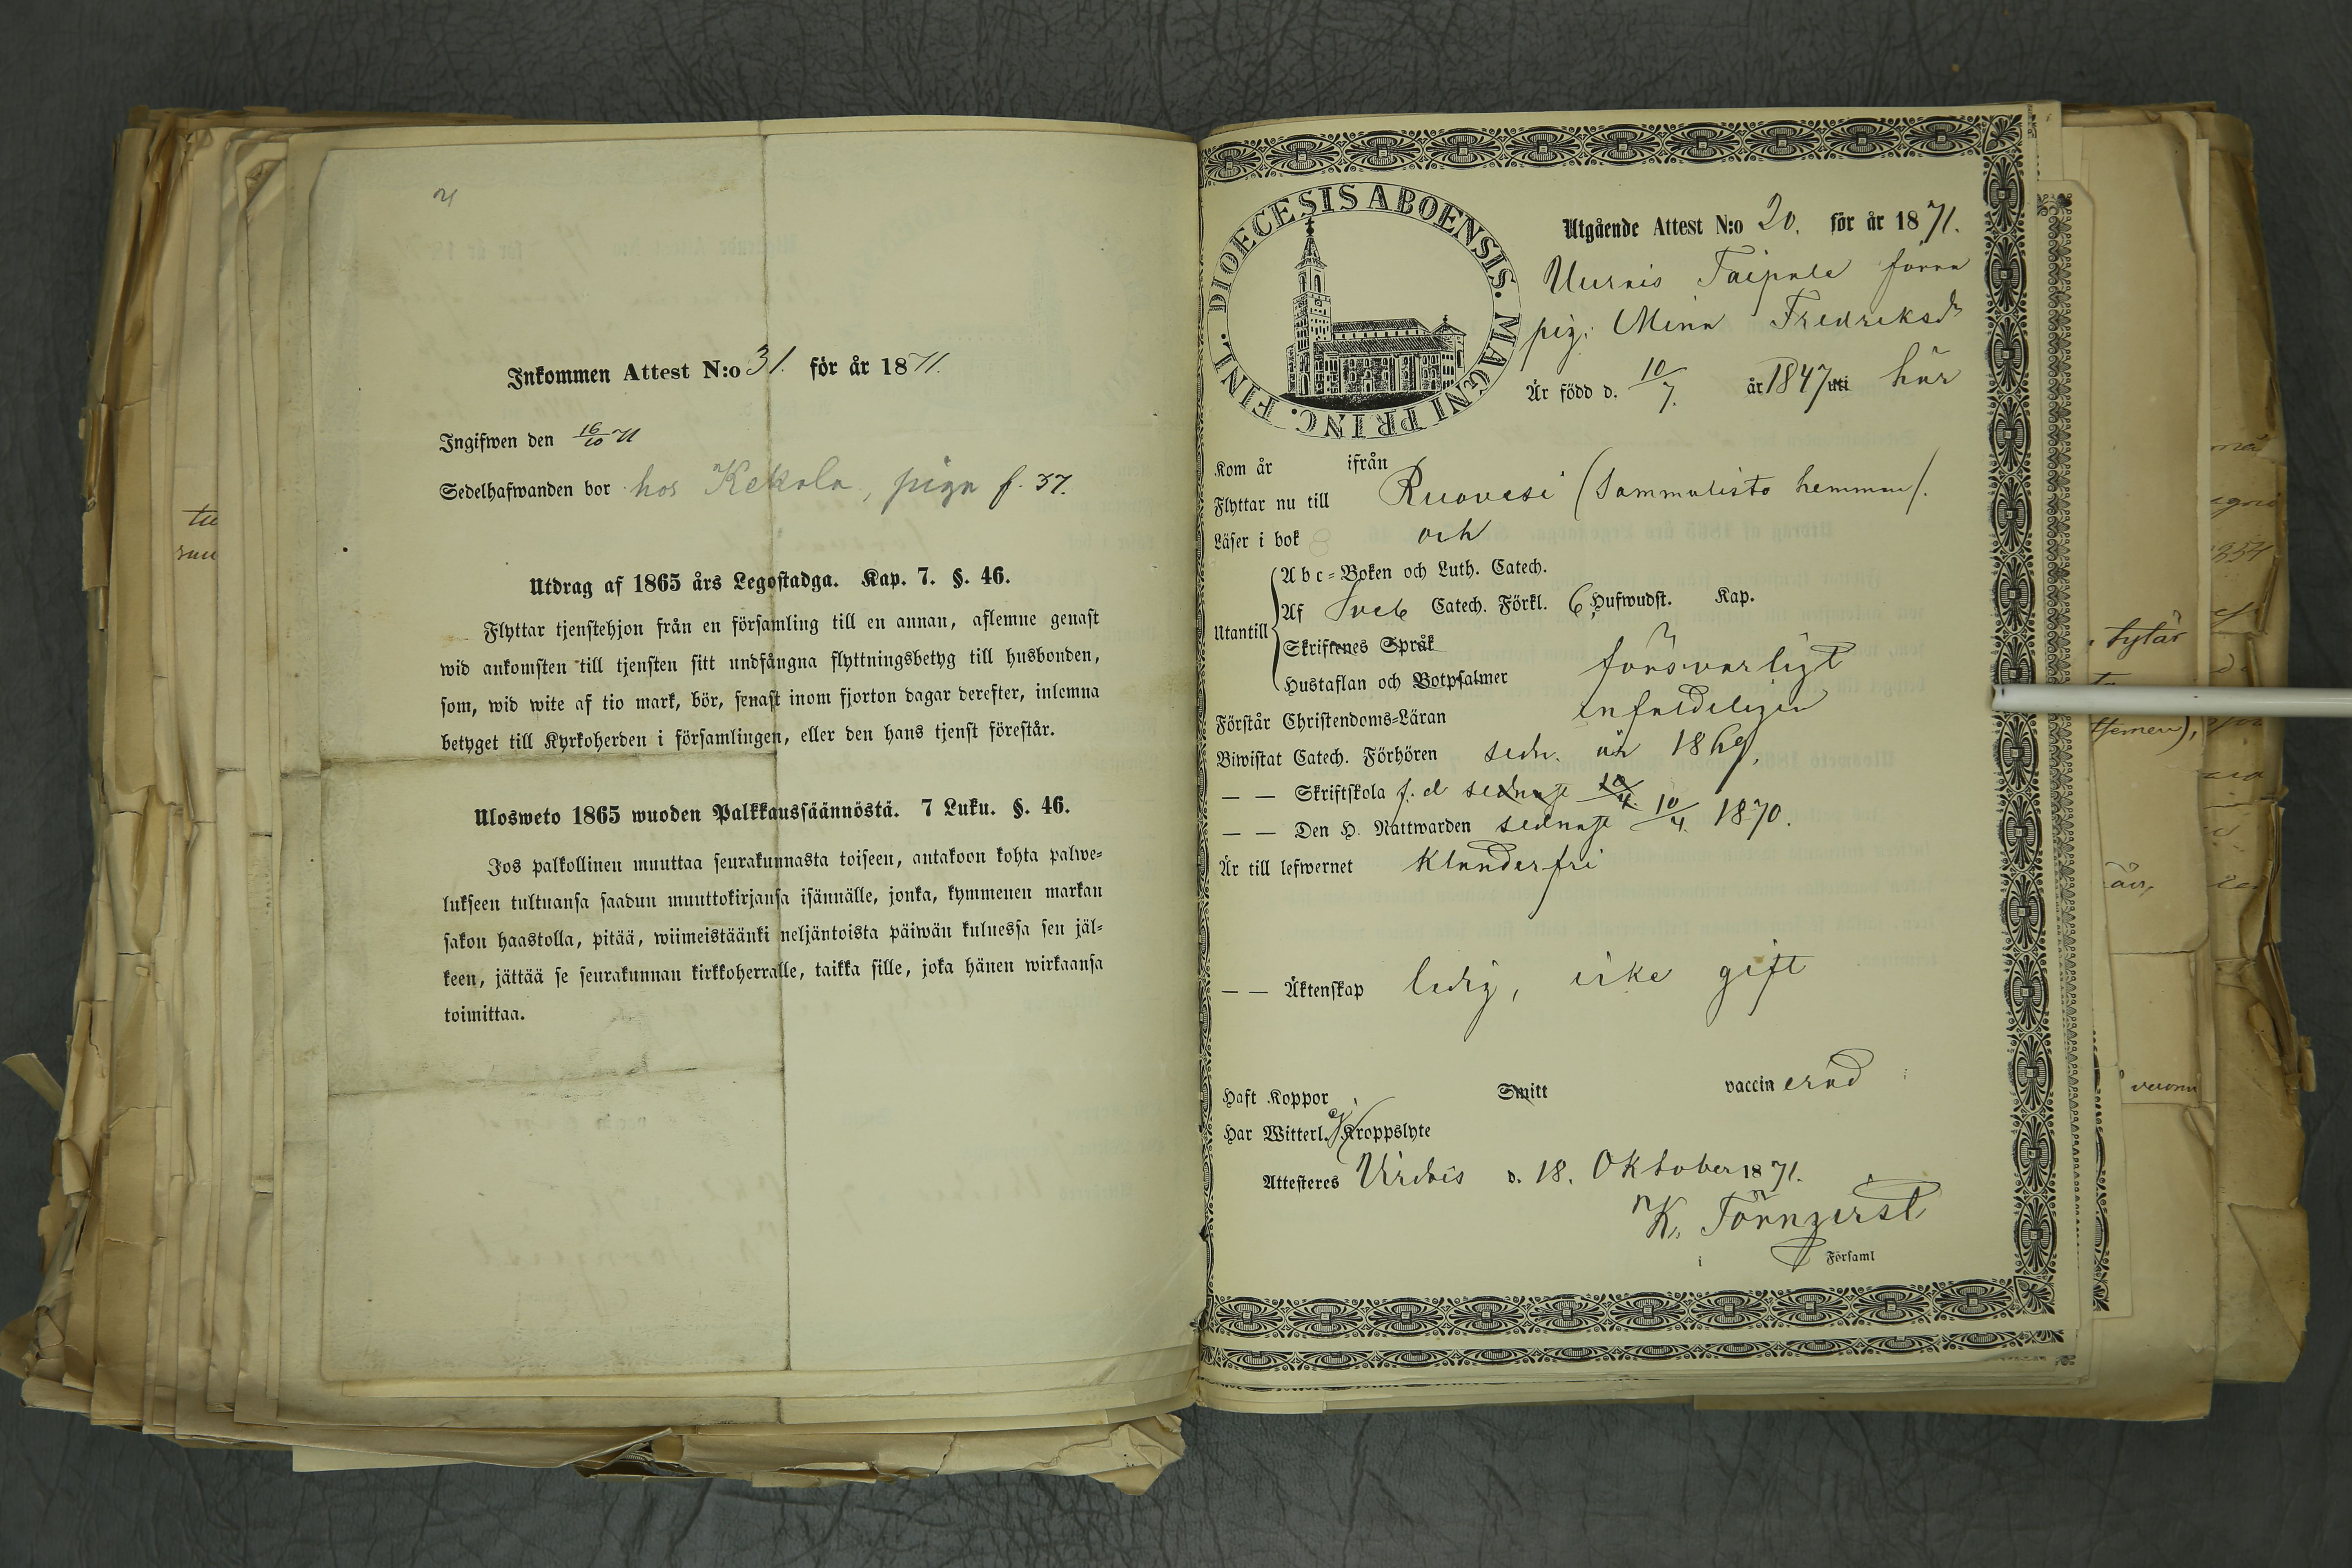 Inkommen Attest N:o 31. för år 1871.
Ingifwen den 16/10 71
Sedelhafwanden bor hos Kekola, piga f. 37.
Utdrag af 1865 års Legostadga. Kap. 7. §. 46.
Flyttar tjenstehjon från en församling till en annan, aflemne genast
wid ankomsten till tjensten sitt undfångna flyttningsbetyg till husbonden,
som, wid wite af tio mark, bör, senast inom fjorton dagar derefter, inlemna
betyget till Kyrkoherden i församlingen, eller den hans tjenst förestår.
Ulosweto 1865 wuoden Palkkaussäännöstä. 7 Luku. §. 46.
Jos palkollinen muuttaa seurakunnasta toiseen, antakoon kohta palwe-
lukseen tultuansa saadun muuttokirjansa isännälle, jonka, kymmenen markan
sakon haastolla, pitää, wiimeistäänki neljäntoista päiwän kuluessa sen jäl-
keen, jättää se seurakunnan kirkkoherralle, taikka sille, joka hänen wirkaansa
toimittaa.
DIOECESIS ABOENSIS. MAGNI PRINC. FINL.
Utgående Attest N:o 20. för år 1871.
Uurais Taipale forna
pig. Mina Fredriksdr
Är född d. 10/7. år 1847 uti här
Kom år ifrån
Flyttar nu till Ruovesi (Sammalisto hemman).
Läser i bok och
Abc-Boken och Luth. Catech.
Utantill Af Sveb Catech. Förkl. 6 Hufwudst. Kap.
Skriftenes Språk
Hustaflan och Botpsalmer försvarligt
Förstår Christendoms-Läran enfaldeligen
Biwistat Catech. Förhören sedn. år 1869.
— — Skriftskola f. d sednast 10/4.
— — Den H. Nattwarden sednast 10/4. 1870.
Är till lefwernet klanderfri
— — Äktenskap ledig, icke gift
Haft Koppor Smitt vaccinerad
Har Witterl. ej Kroppslyte
Attesteres Virdois d. 18. Oktober 1871.
K. Törnqvist
i Församl